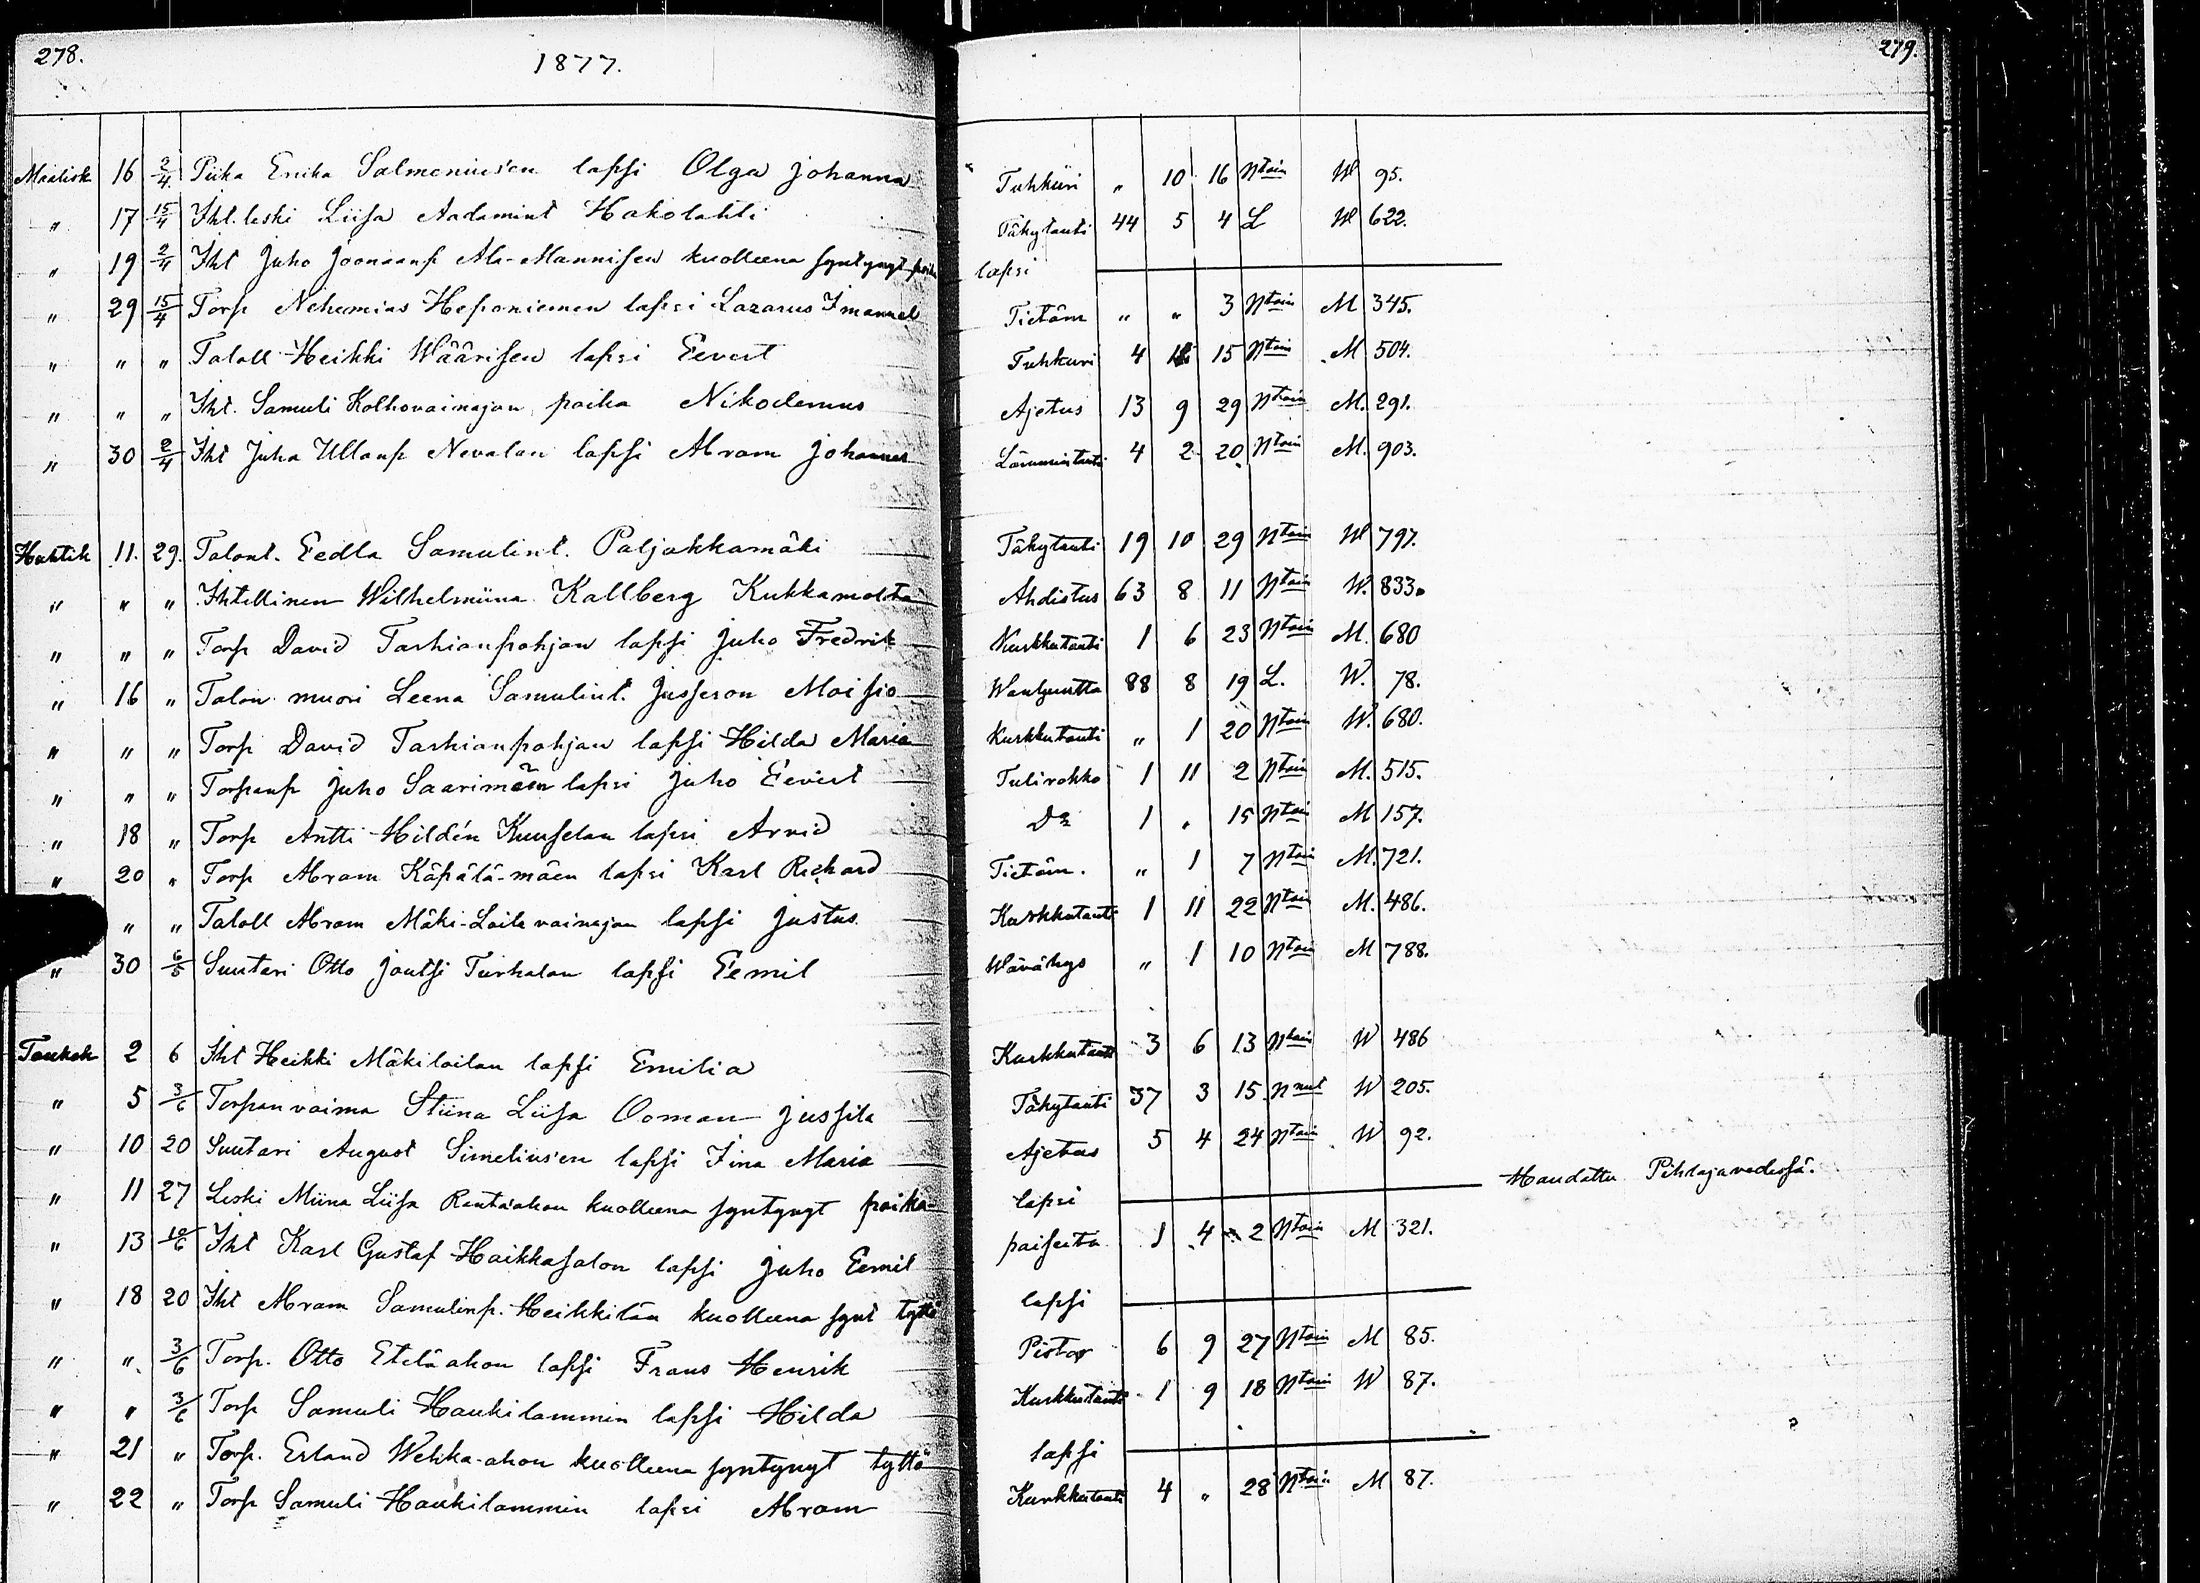 278. 1877. 279.
Maalisk 16 2/4 Piika Erika Salmenius'en lapsi Olga Johanna Tuhkuri " 10 16 Ntoin W 95.
" 17 15/4 Iht. leski Liisa Aadamint Hakolahti Tähytauti 44 5 4 L W 622.
" 19 2/4 Iht Juho Joonaanp Ala-Mannisen kuolleena syntynyt poika lapsi
" 29 15/4 Torp Nehemias Heponiemen lapsi Lazarus Imanuel Tietäm " " 3 Ntoin M 345.
" " " Taloll Heikki Wäärisen lapsi Eevert Tuhkuri 4 15 Ntoin M 504.
" " " Iht. Samuli Kolhovainajan poika Nikodemus Ajetus 13 9 29 Ntoin M. 291.
" 30 2/4 Iht Juha Ullanp Nevalan lapsi Abram Johannes Lämmintauti 4 2 20 Ntoin M. 903.
Huhtik 11. 29. Talont. Eedla Samulint. Paljakkamäki Tähytauti 19 10 29 Ntoin W 797.
" " " Ihtellinen Wilhelmiina Kallberg Kukkamolta Ahdistus 63 8 11 Ntoin W. 833.
" " " Torp David Tarhianpohjan lapsi Juho Fredrik Kurkkutauti 1 6 23 Ntoin M. 680
" 16 " Talon muori Leena Samulint. Jusseron Moisio Wanhuutta 88 8 19 L. W. 78.
" " " Torp David Tarhianpohjan lapsi Hilda Maria Kurkkutauti " 1 20 Ntoin W. 680.
" " " Torpanp Juho Saarimäen lapsi Juho Eevert Tulirokko 1 11 2 Ntoin M. 515.
" 18 " Torp Antti Hildén Kuuselan lapsi Arvid Do 1 " 15 Ntoin M 157.
" 20 " Torp Abram Käpälä-mäen lapsi Karl Richard Tietäm. " 1 7 Ntoin M. 721.
" " Taloll Abram Mäki-Laila vainajan lapsi Justus Kurkkutauti 1 11 22 Ntoin M. 486.
" 30 6/5 Suutari Otto Joutsi Turhalan lapsi Eemil Wävähys " 1 10 Ntoin M 788.
Toukok 2 6 Iht Heikki Mäkilailan lapsi Emilia Kurkkutauti 3 6 13 Ntoin W 486
" 5 3/6 Torpan vaimo Stiina Liisa Ooman Jussila Tähytauti 37 3 15 Nnut W 205.
" 10 20 Suutari August Simelius'en lapsi Fina Maria Ajetus 5 4 24 Ntoin W 92.
" 11 27 Leski Miina Liisa Rantaahon kuolleena syntynyt poika lapsi Haudattu Pihlajavedessä.
" 13 10/6 Iht Karl Gustaf Haikkasalon lapsi Juho Eemil paiseita 1 4 2 Ntoin M 321.
" 18 20 Iht Abram Samulinp. Heikkilän kuolleena synt tyttö lapsi
" " 3/6 Torp. Otto Eteläahon lapsi Frans Henrik Pistos 6 9 27 Ntoin M 85.
" " 3/6 Torp Samuli Haukilammin lapsi Hilda Kurkkutauti 1 9 18 Ntoin W 87.
" 21 " Torp. Erland Wehka-ahon kuolleena syntynyt tyttö lapsi
" 22 " Torp Samuli Haukilammin lapsi Abram Kurkkutauti 4 " 28 Ntoin M 87.